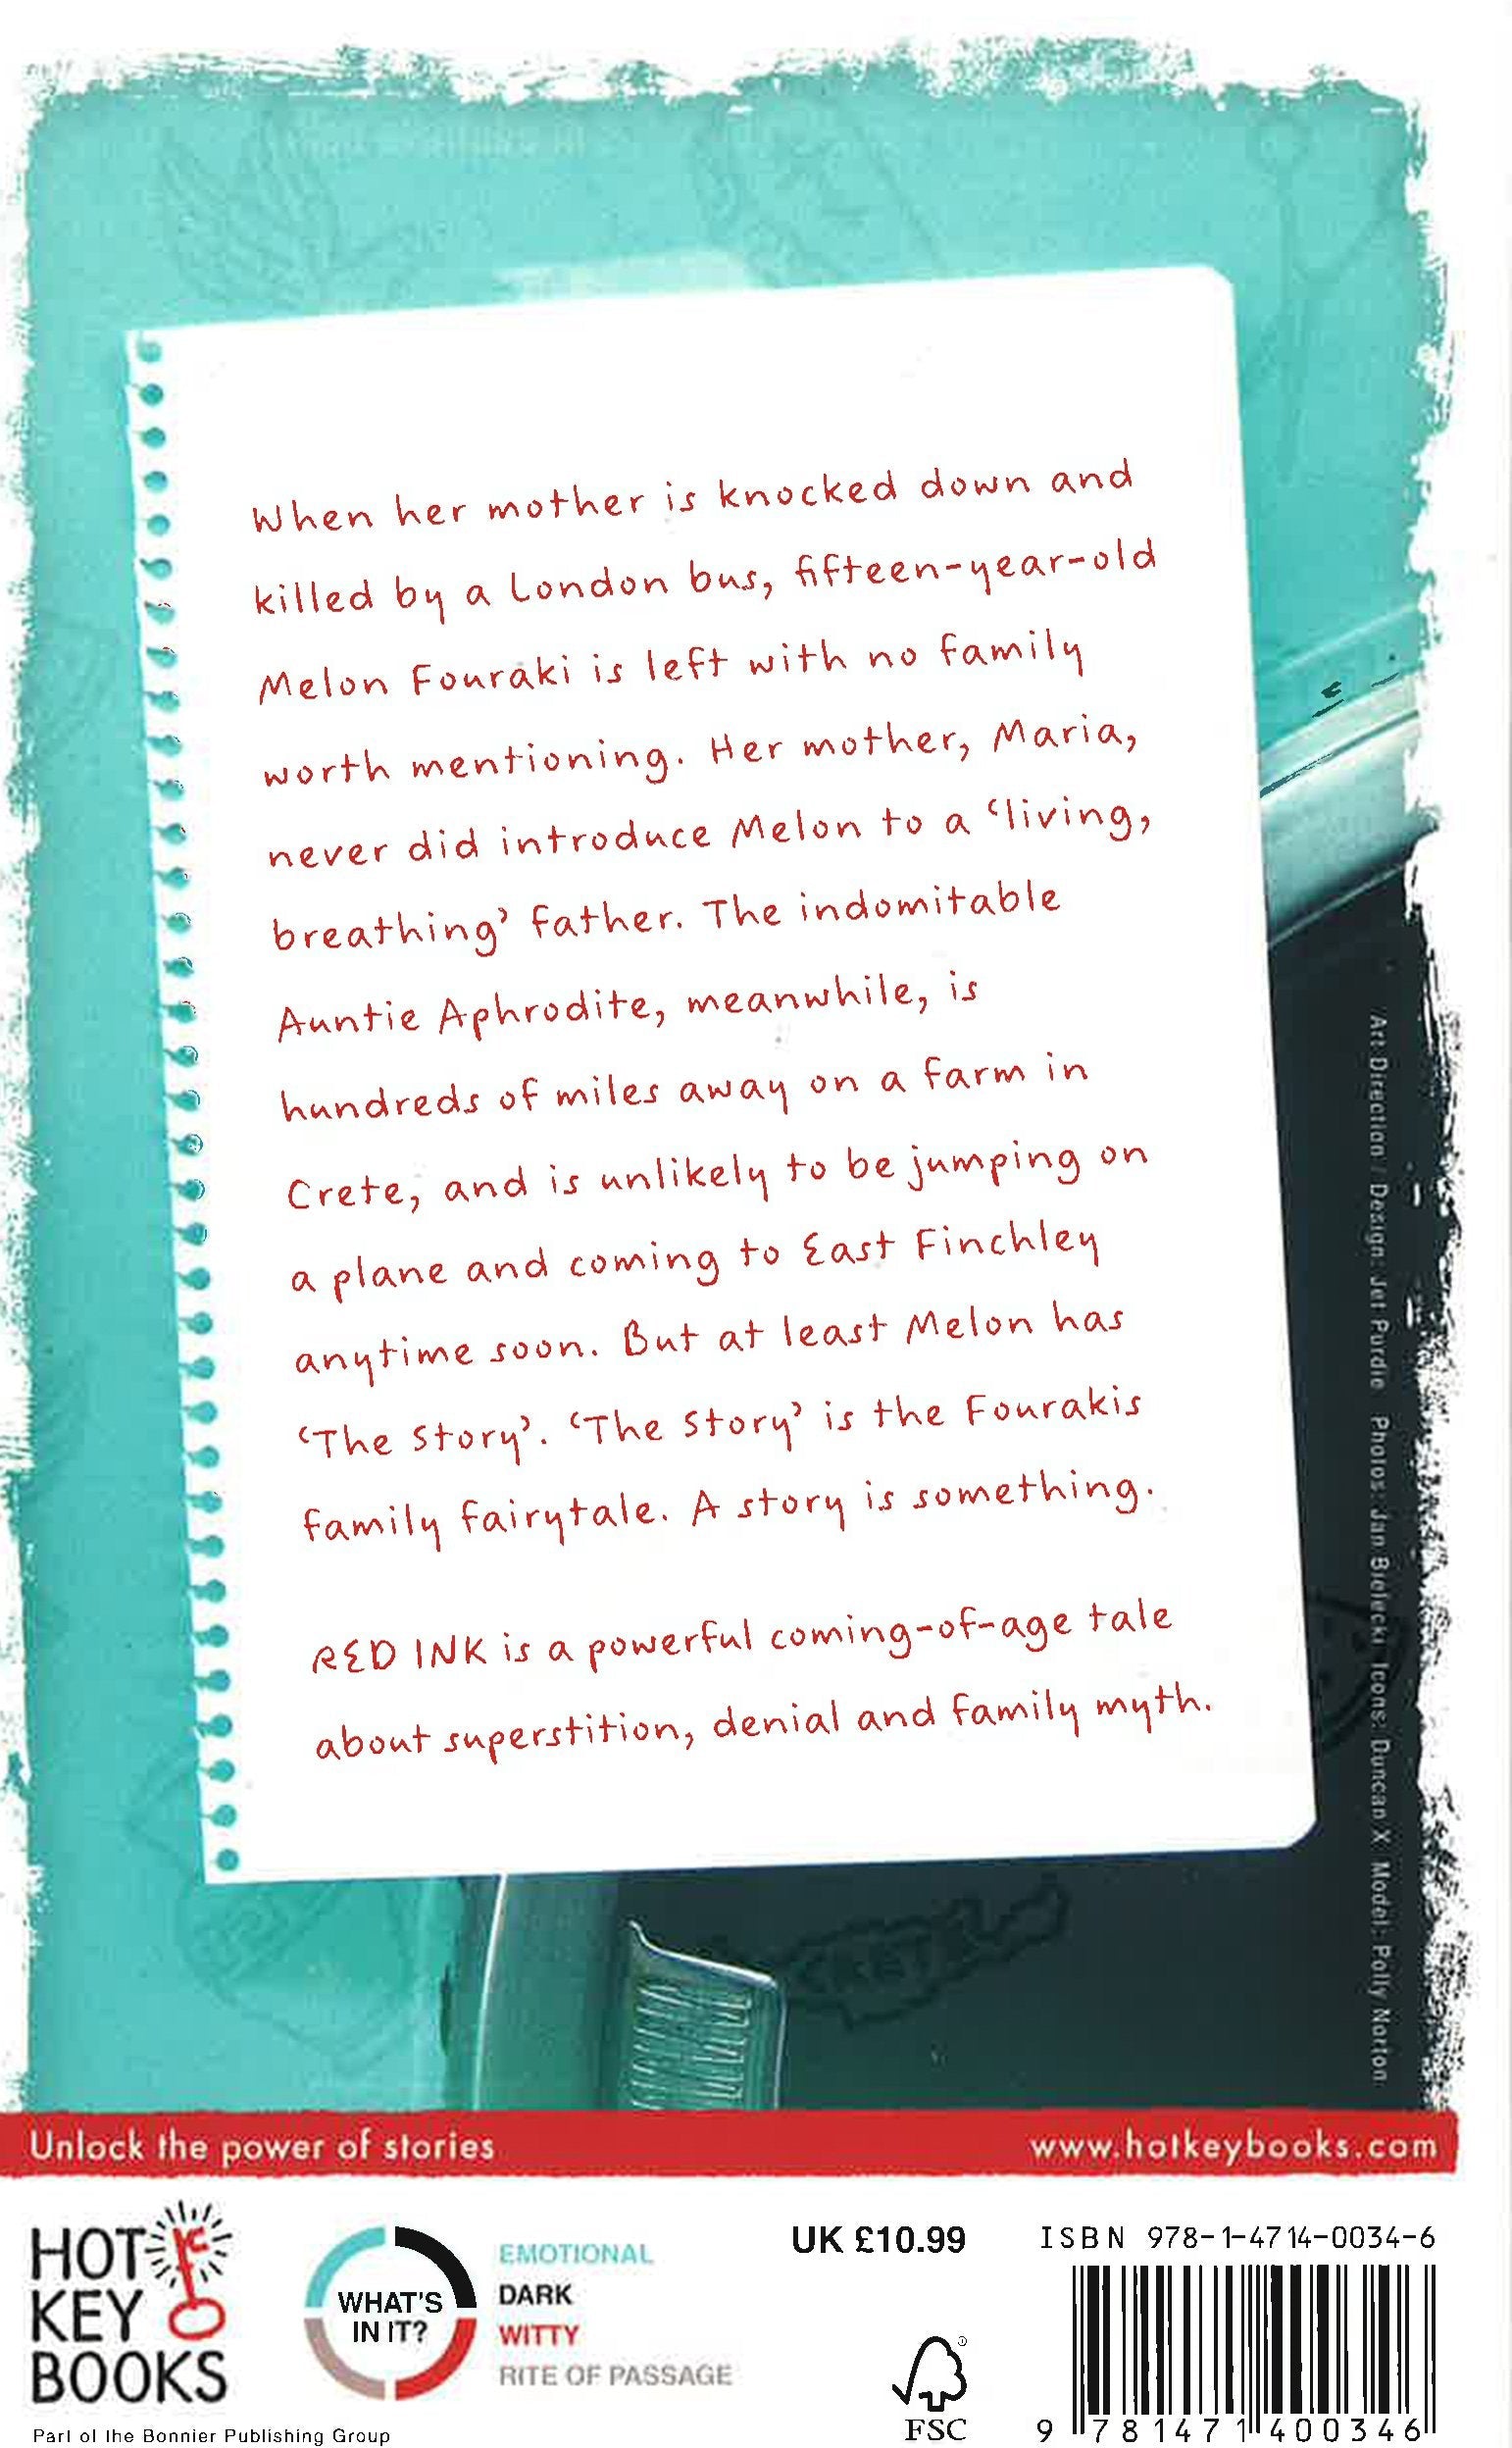 When her mother is knocked down and
killed by a London bus, fifteen-year-old
Melon Fouraki is left with no family
worth mentioning. Her mother, Maria,
never did introduce Melon to a ‘living,
breathing’ father. The indomitable
Auntie Aphrodite, meanwhile, is
hundreds of miles away on a farm in
Crete, and is unlikely to be jumping on
a plane and coming to East Finchley
anytime soon. But at least Melon has
‘The Story’. ‘The Story’ is the Fourakis
family fairytale. A story is something.
RED INK is a powerful coming-of-age tale
about superstition, denial and family myth.
Art Direction / Design: Jet Purdie Photos: Jan Bielecki Icons: Duncan X Model: Polly Norton
Unlock the power of stories
www.hotkeybooks.com
HOT
KEY
BOOKS
Part of the Bonnier Publishing Group
WHAT'S
IN IT?
EMOTIONAL
DARK
WITTY
RITE OF PASSAGE
UK £10.99
FSC
ISBN 978-1-4714-0034-6
9 781471 400346